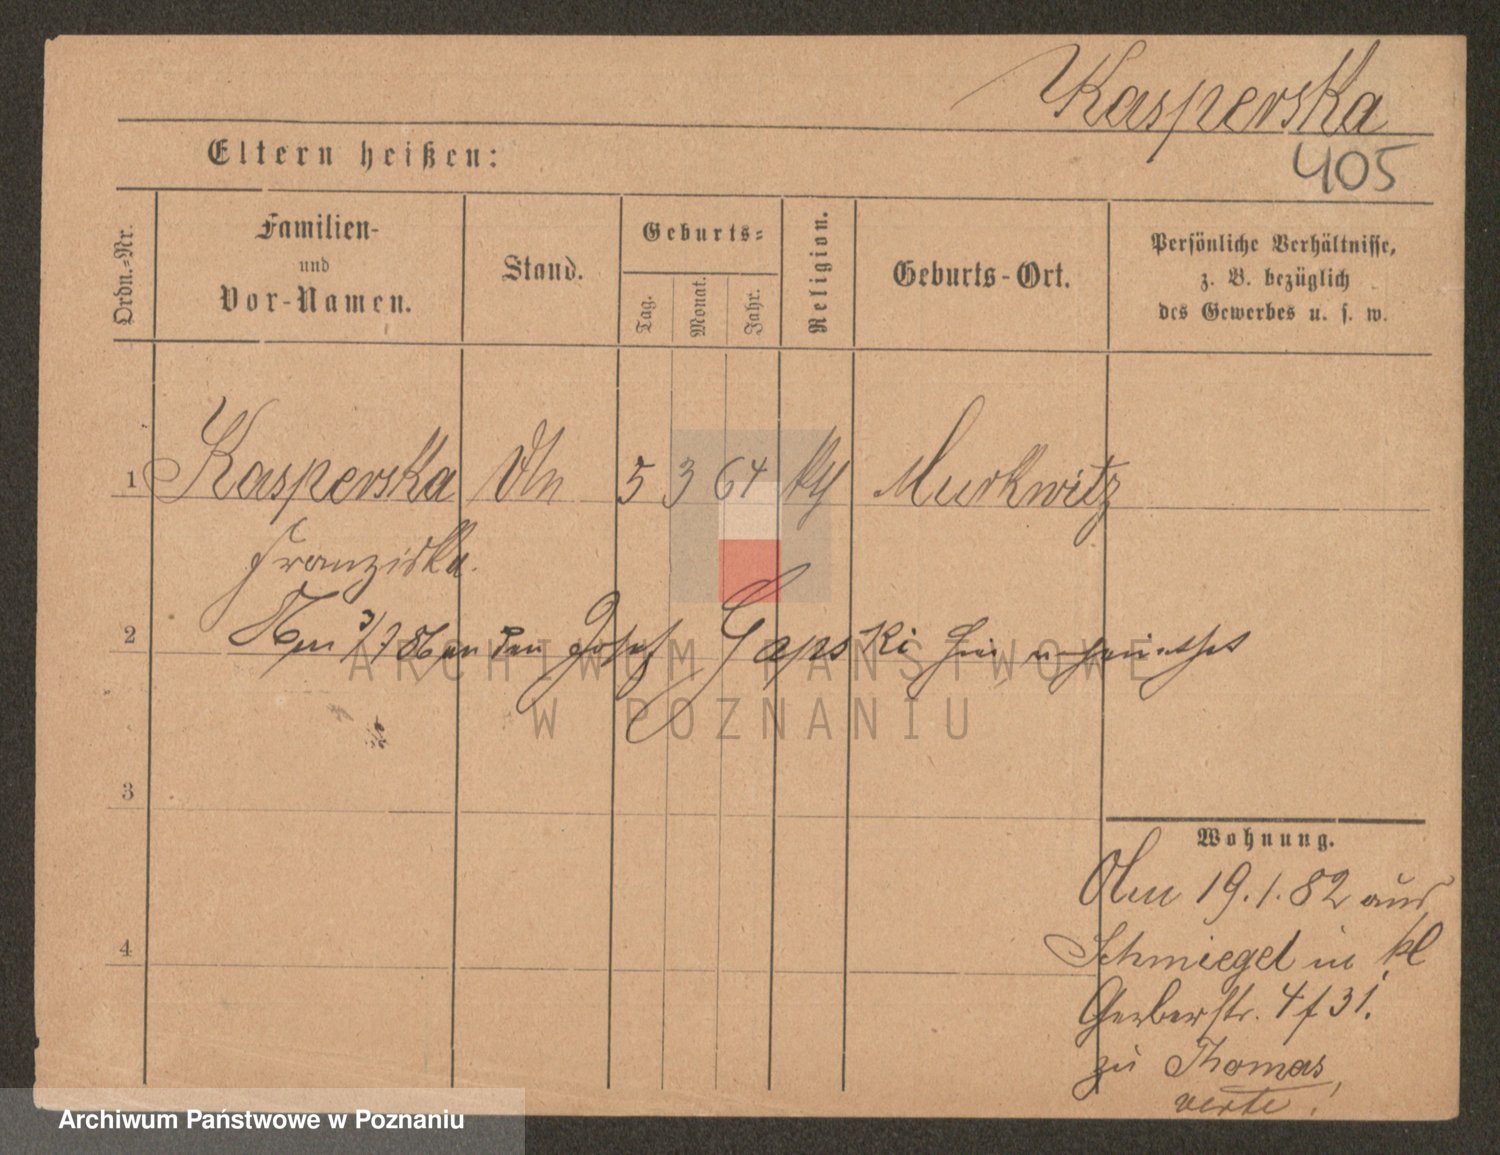 Kasperska
405
Eltern heißen:
Ordn.-Nr.
Familien-
und
Vor-Namen.
Stand.
Geburts-
Tag.
Monat.
Jahr.
Religion.
Geburts-Ort.
Persönliche Verhältnisse,
z. B. bezüglich
des Gewerbes u. s. w.
1 Kasperska 5 3 64 Murkwitz
Franziska.
2 den Josef Gapski
ARCHIWUM PAŃSTWOWE
W POZNANIU
3
Wohnung.
19.1.82 aus
4 Schmiegel in kl
Gerberstr. 4 f 31.
zu Thomas
verte!
Archiwum Państwowe w Poznaniu